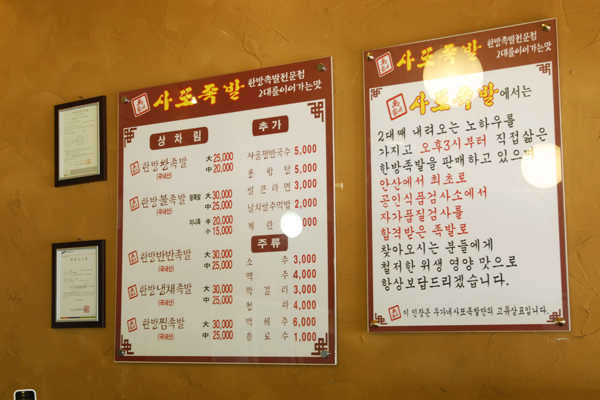 사또족발 한방족발전문점
2대를이어가는맛
상차림
한방왕족발 大 25,000
(국내산) 中 20,000
한방불족발 왕족발 大 30,000
(국내산) 中 25,000
미니족 中 20,000
小 15,000
한방반반족발 大 30,000
(국내산) 中 25,000
한방냉채족발 大 30,000
(국내산) 中 25,000
한방찜족발 大 30,000
(국내산) 中 25,000
추가
사골쟁반국수 5,000
홍합탕 5,000
얼큰라면 3,000
날치알주먹밥 2,000
계란
주류
소주 3,000
맥주 4,000
막걸리 3,000
청하 4,000
백세주 6,000
음료수 1,000
사또족발 한방족발전문점
2대를이어가는맛
사또족발에서는
2대째 내려오는 노하우를
가지고 오후3시부터 직접삶은
한방족발을 판매하고 있으며
안산에서 최초로
공인식품검사소에서
자가품질검사를
합격받은 족발로
찾아오시는 분들에게
철저한 위생 영양 맛으로
항상보답드리겠습니다.